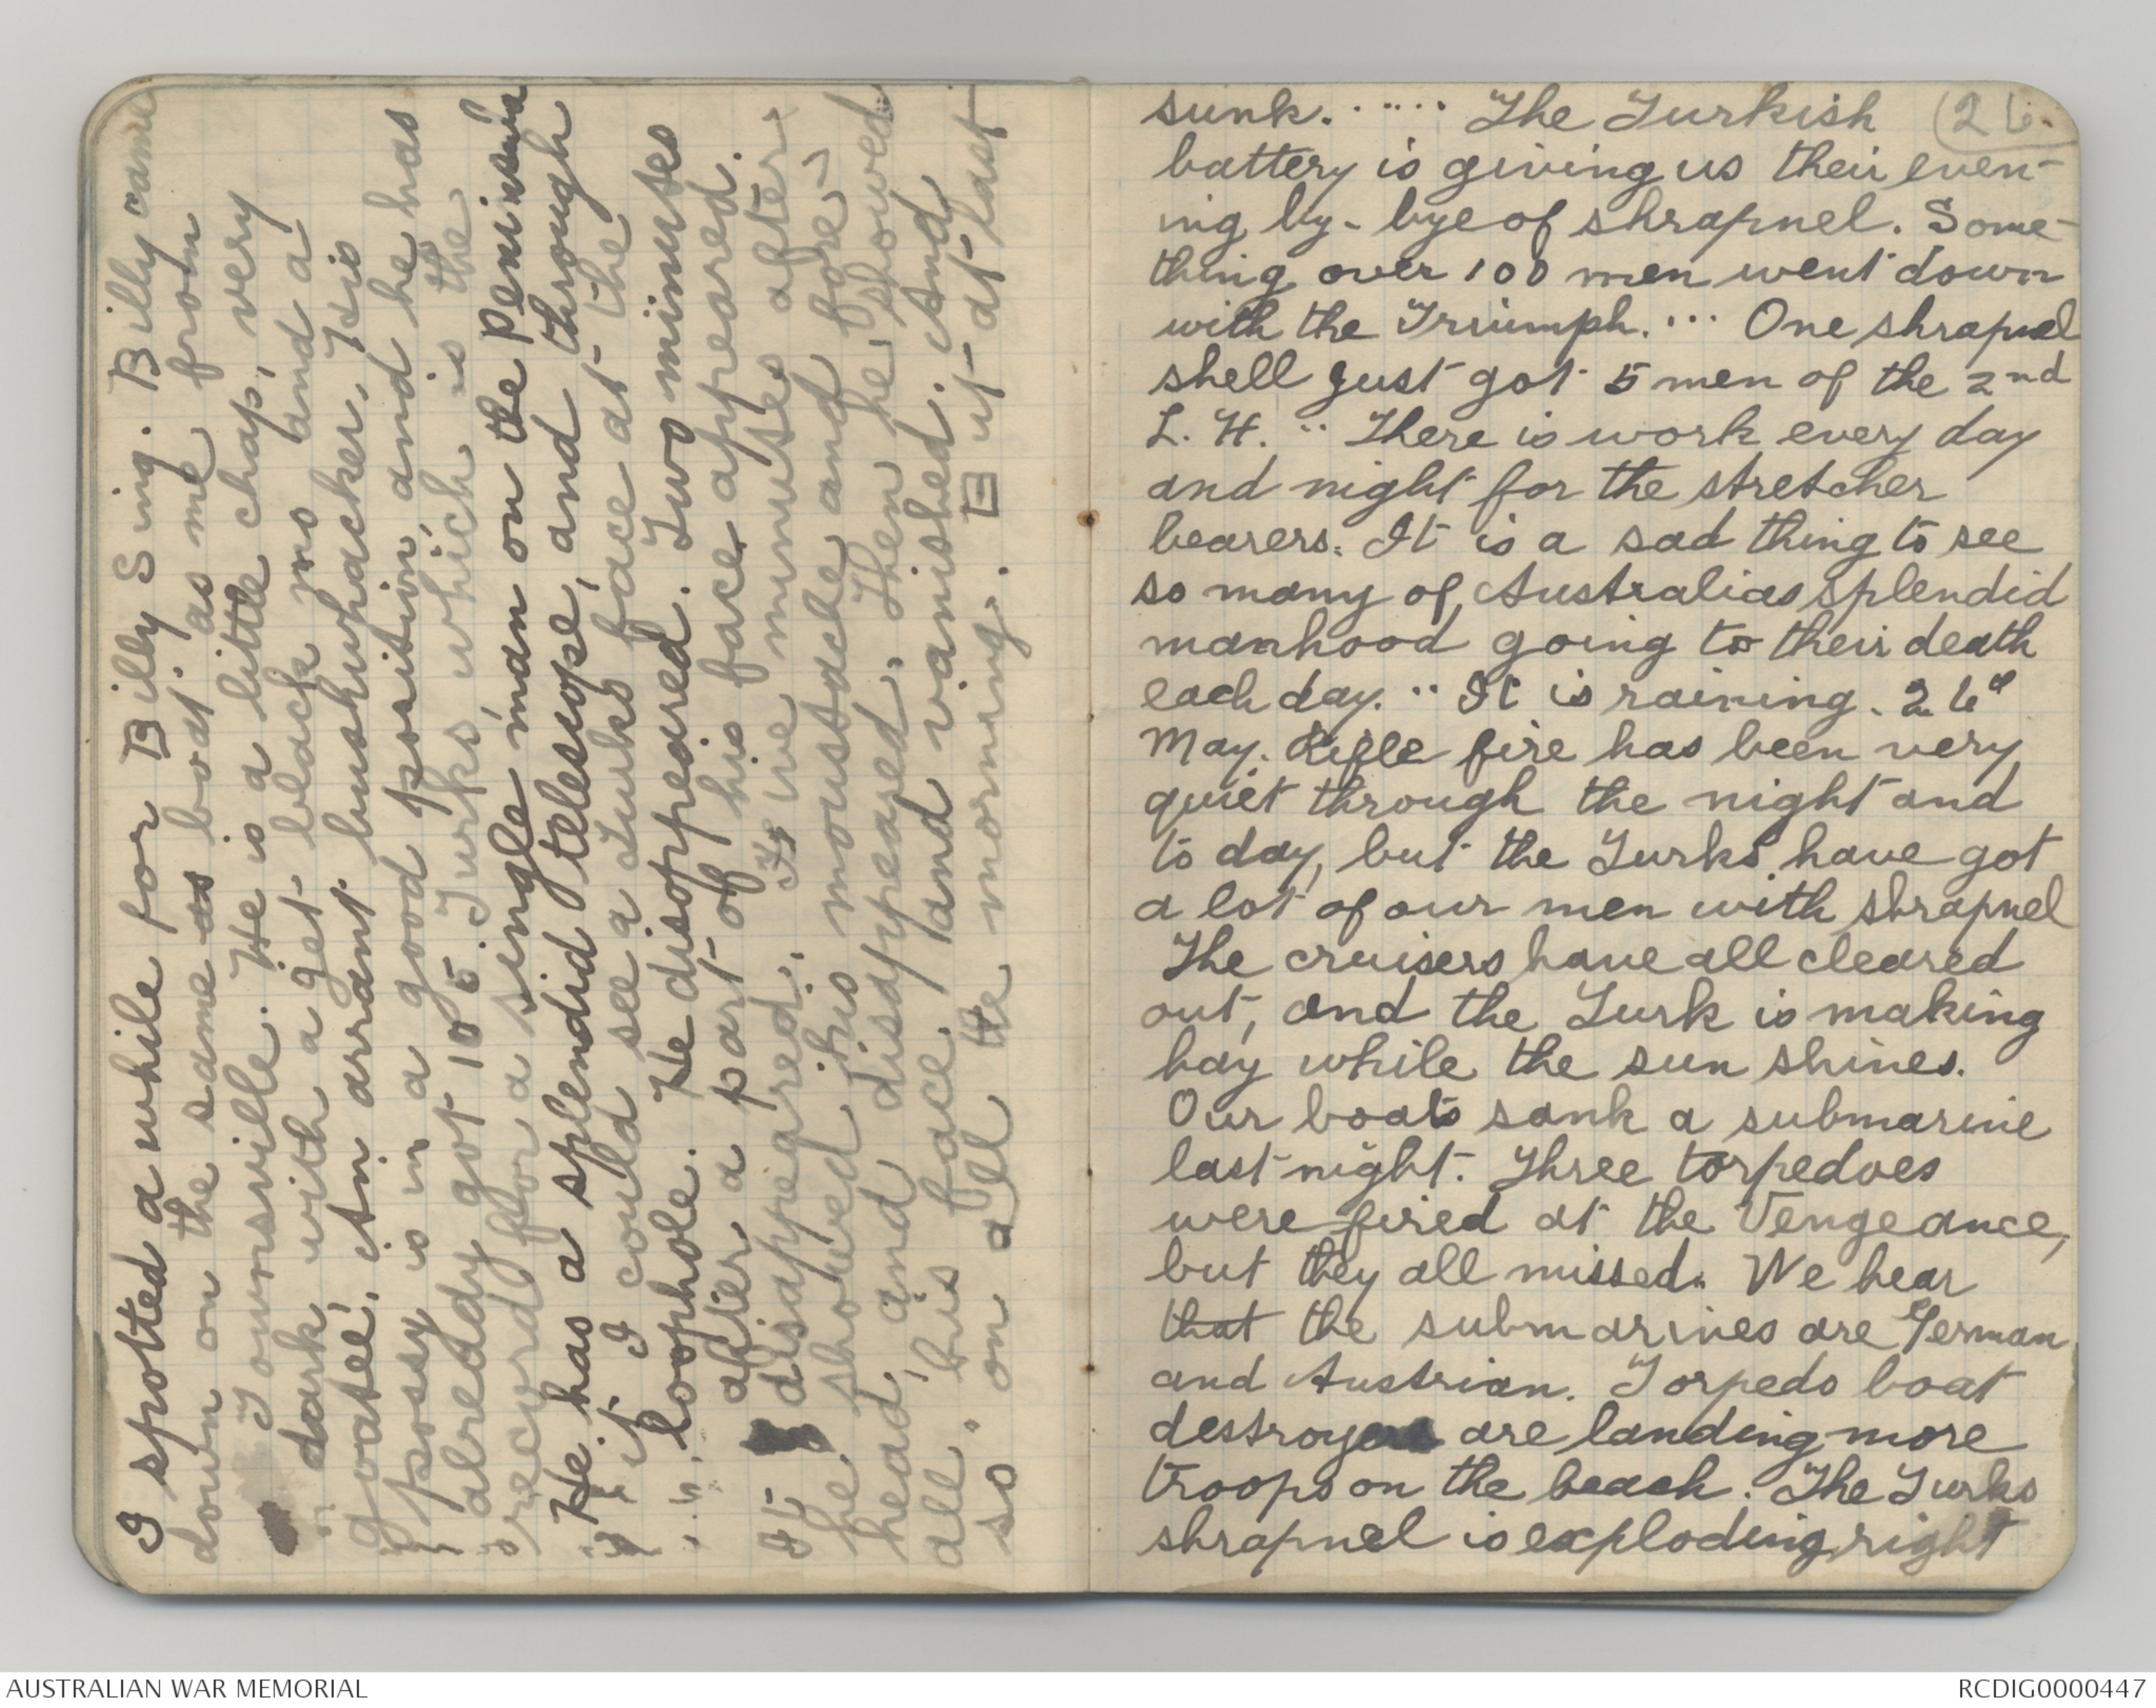 I spotted a while for Billy Sing. Billy came
down on the same as boat as me from
Townsville. He is a little chap, very
dark, with a jet black mo and a
goatee. An arrant bushwhacker. His
possy is in a good position, and he has
already got 105 Turks which is the
record for a single man on the Peninsula
He has a splendid telescope, and through
it I could see a Turks face at the
loophole. He disappeared. Two minutes
after a part of his face appeared.
It disappeared. Five minutes after
he showed his moustache and fore=
head, and disappeared. Then he showed
all his face, and vanished. And
so on all the morning. But at last
sunk. ..... The Turkish (26.
battery is giving us their even-
ing by-bye of shrapnel. Some-
thing over 100 men went down
with the Triumph. ... One shrapnel
shell just got 5 men of the 2nd
L. H. .. There is work every day
and night for the stretcher
bearers. It is a sad thing to see
so many of Australias splendid
manhood going to their death
each day. .. It is raining. 26th
May. Rifle fire has been very
quiet through the night and
to day, but the Turks have got
a lot of our men with shrapnel
The cruisers have all cleared
out, and the Turk is making
hay while the sun shines.
Our boats sank a submarine
last night. Three torpedoes
were fired at the Vengeance,
but they all missed. We hear
that the submarines are German
and Austrian. Torpedo boat
destroyers are landing more
troops on the beach. The Turks
shrapnel is exploding right
AUSTRALIAN WAR MEMORIAL
RCDIG0000447